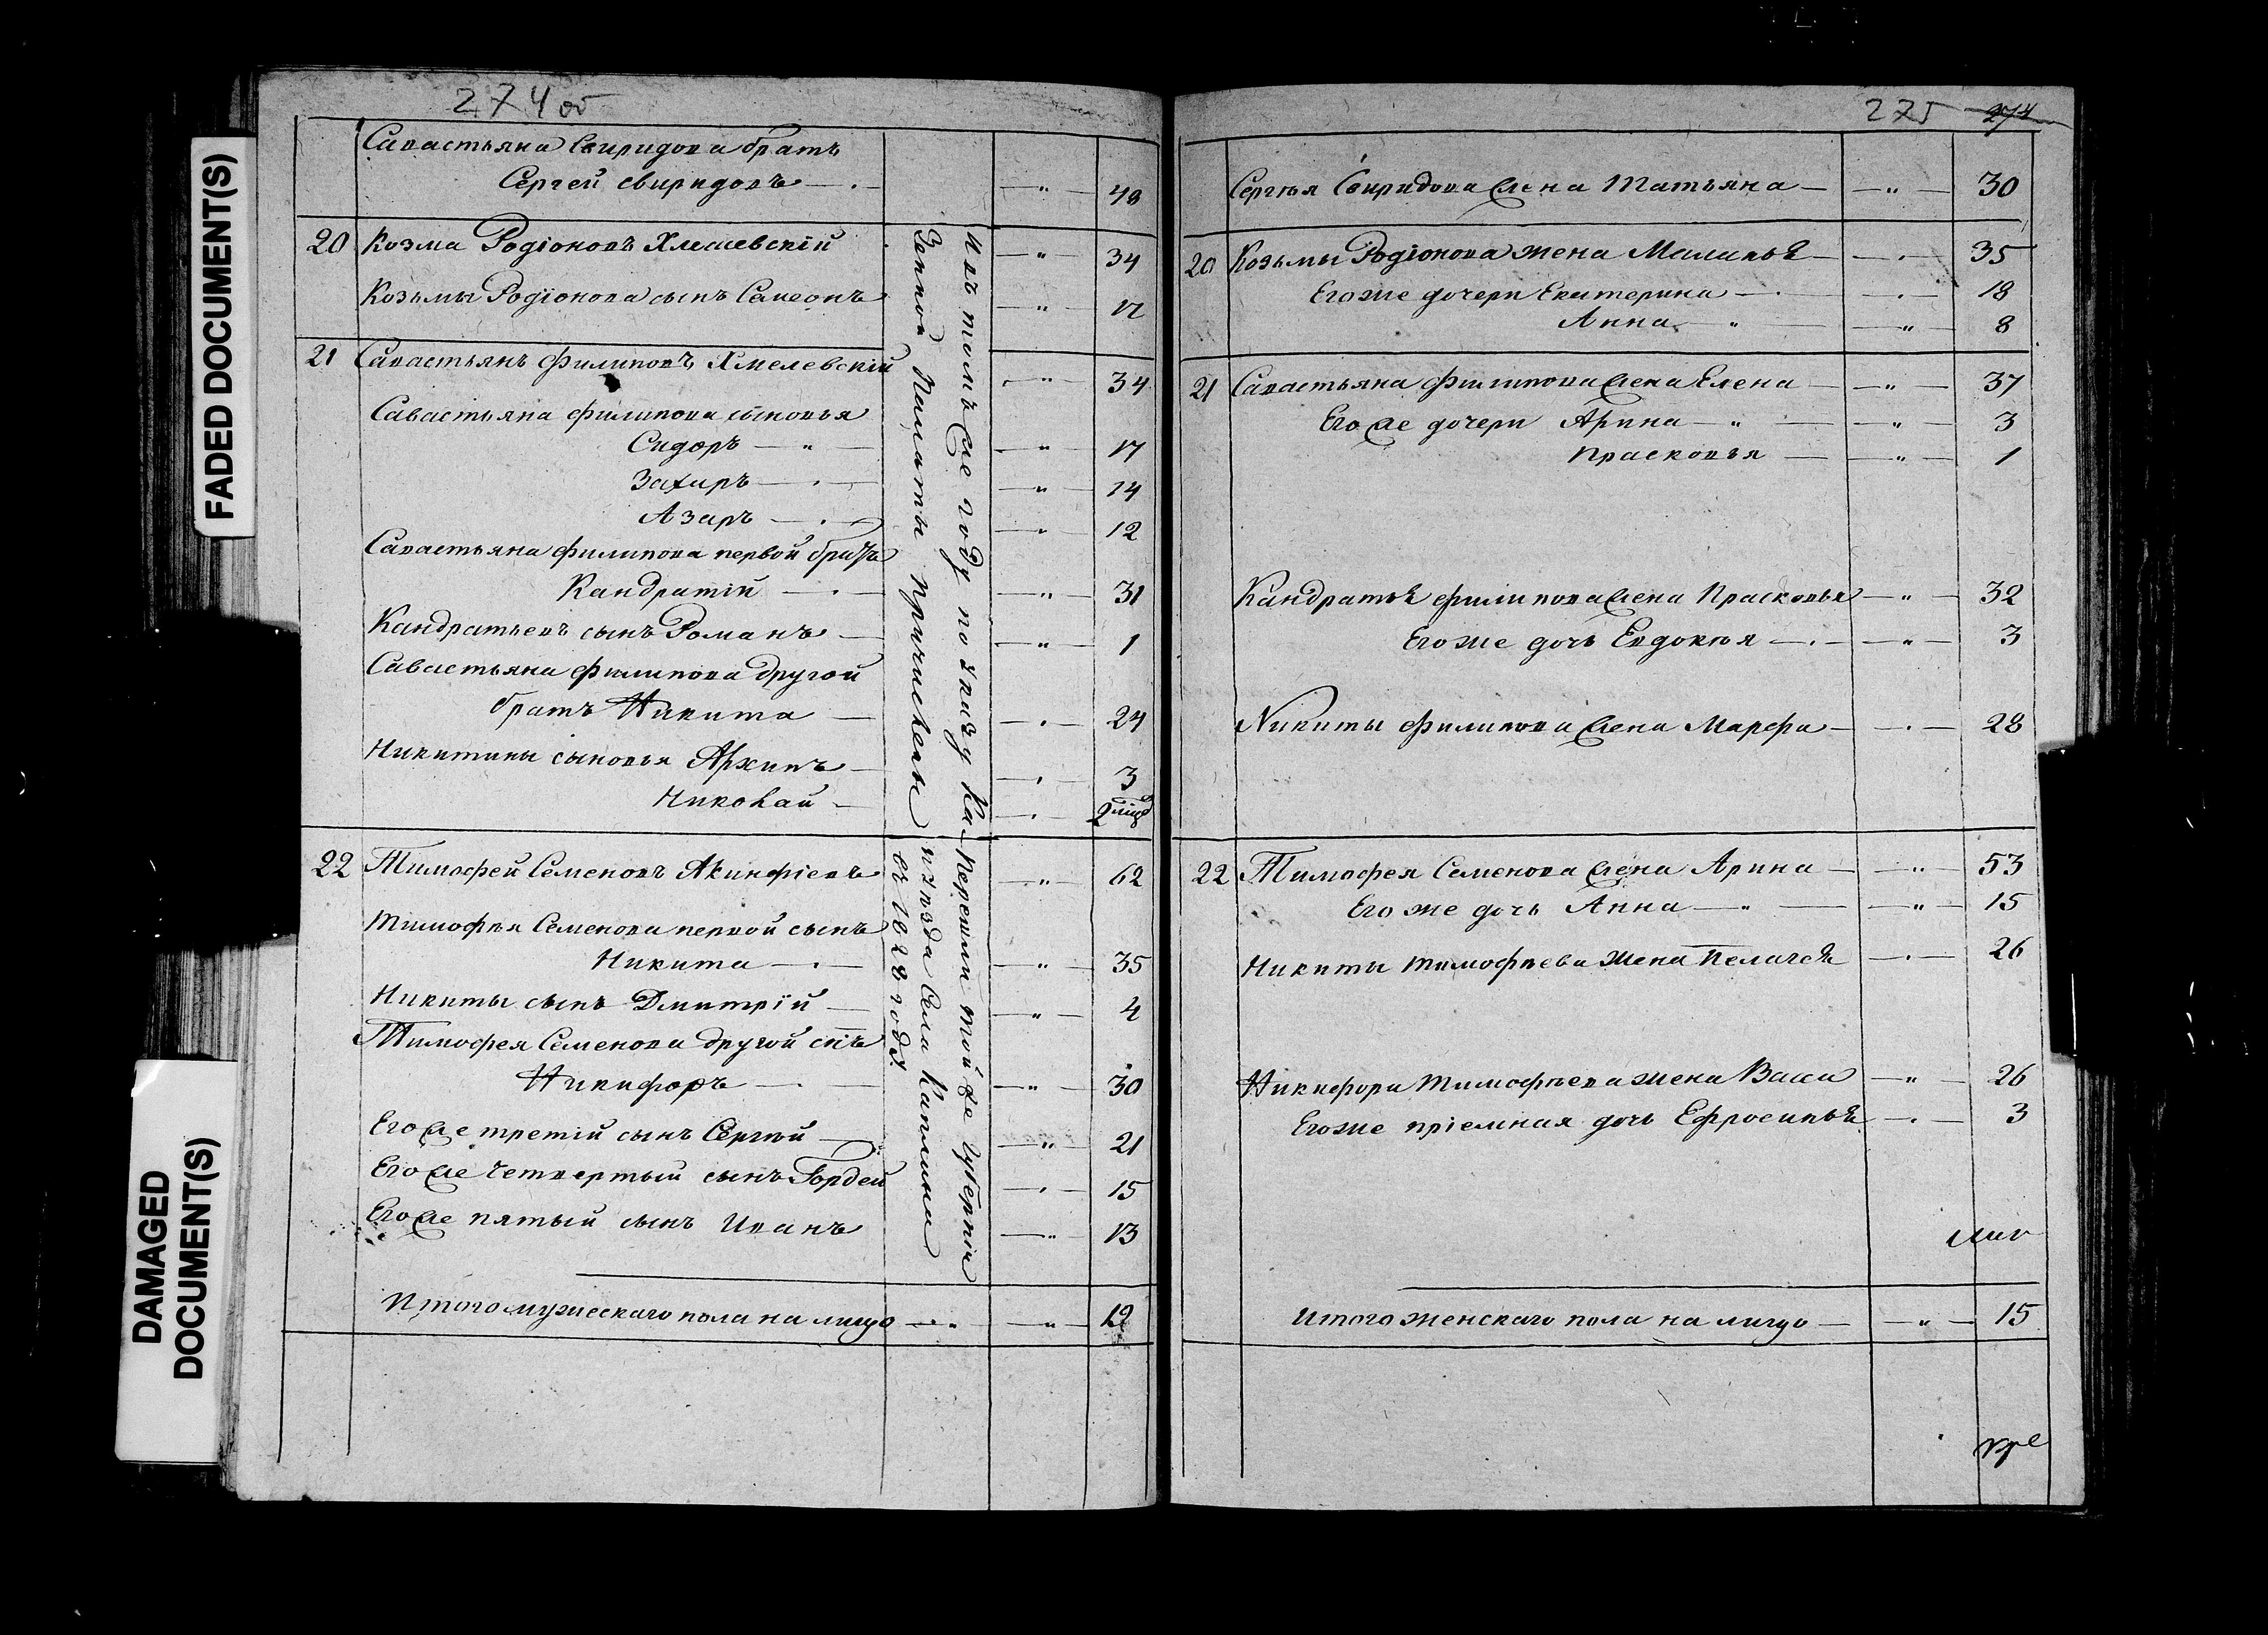 FADED DOCUMENT(S)
DAMAGED
DOCUMENT(S)
274 об
Савастьяна Свиридова братъ
Сергей Свиридовъ 48
20 Козма Родіоновъ Хмелевскій 34
Козьмы Родіонова сынъ Самеонъ 12
21 Савастьянъ Филиповъ Хмелевскій 34
Савастьяна Филипова сыновья
Сидоръ 17
Захаръ 14
Азаръ 12
Савастьяна Филипова первой братъ
Кандратій 31
Кандратьевъ сынъ Романъ 1
Савастьяна Филипова другой
братъ Никита 24
Никитины сыновья Архипъ 3
Николай
Ивъ томъ же году по указу Ка-
зенной Палаты причислены
22 Тимофей Семеновъ Акинфіевъ 62
Тимофѣя Семенова первой сынъ
Никита 35
Никиты сынъ Дмитрій 4
Тимофея Семенова другой снъ
Никифоръ 30
Его же третій сынъ Сергѣй 21
Его же четвертый сынъ Гордей 15
Его же пятый сынъ Иванъ 13
Перешли той же губерніи
уѣзда села
въ 1828 году
Итого мужескаго пола на лицо 19
275 274
Сергѣя Свиридова жена Татьяна 30
20 Козьмы Родіонова жена Маланья 35
Его же дочери Екатерина 18
Анна 8
21 Савастьяна Филипова жена Елена 37
Его же дочери Арина 3
Прасковья 1
Кандратья Филипова жена Прасковья 32
Его же дочь Евдокѣя 3
Никиты Филипова жена Марфа 28
22 Тимофея Семенова жена Арина 53
Его же дочь Анна 15
Никиты Тимофѣева жена Пелагея 26
Никифора Тимофѣева жена Васса 26
Его же пріемная дочь Ефросинья 3
Итого женскаго пола на лицо 15